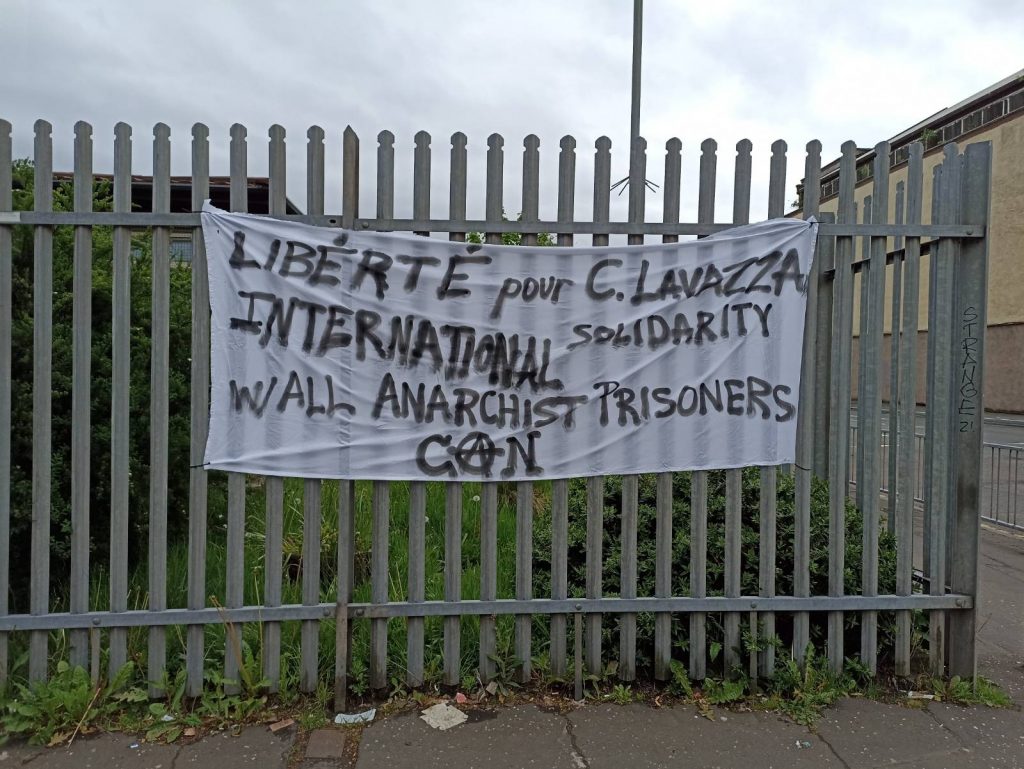 LIBÉRTÉ pour C. LAVAZZA
INTERNATIONAL SOLIDARITY
W/ALL ANARCHIST PRISONERS
CAN
STRANGE
21